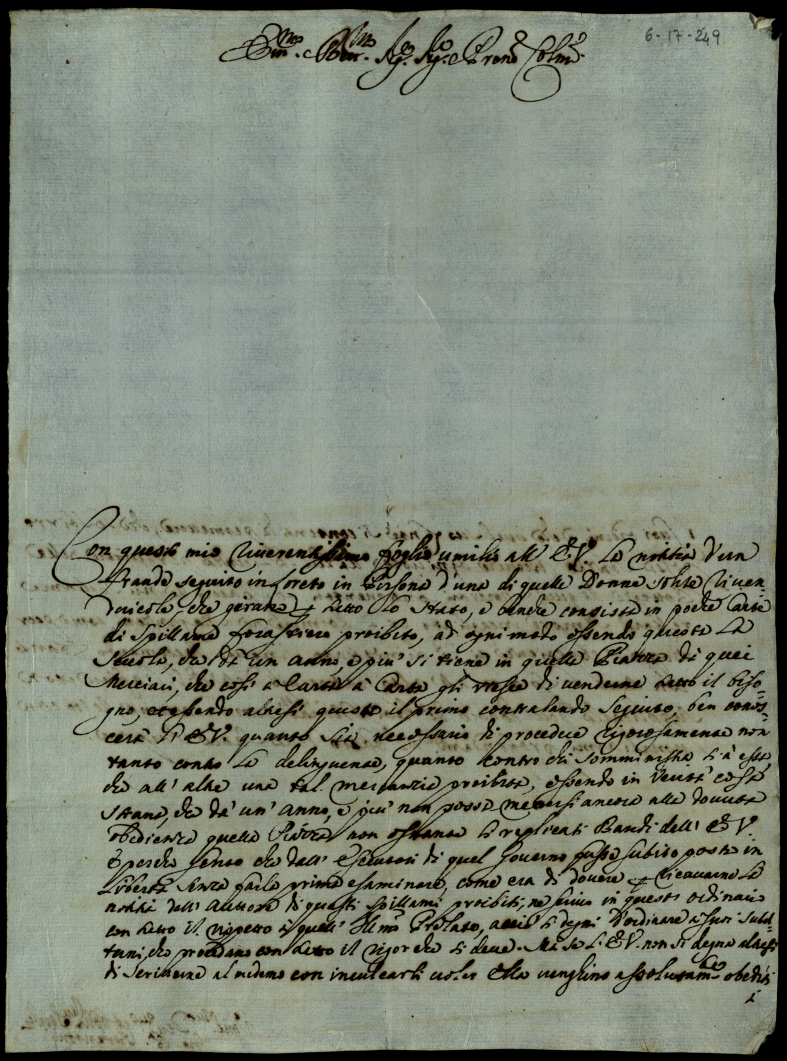 6-17-249
Em.mo e Rev.mo Sig.r Sig.e Prone Colmo
Con questo mio riverentissimo foglio umilio all' E.V. la notitia d'un
frando seguito in Loreto in persona d'una di quelle Donne solite riven-
dericole, che girano p tutto lo stato, e benche consista in poche Carte
di Spillame forastiero proibito, ad ogni modo essendo questa la
scuola, che da un anno, e piu' si tiene in quella Piazza da quei
Merciari, che così a Carta a Carta gli riesce di venderne tutto il biso-
gno, et essendo altresi questo il primo contrabando seguito, ben conos-
cerà l' E.V. quanto sia necessario di procedere rigorosamente non
tanto contro la delinquente, quanto contro chi somministra sì a essa,
che all' altre una tal mercanzia proibita, essendo in verità cosa
strana, che da un' anno, e piu' non possa mettersi ancora alla dovuta
obedienza quella Piazza non ostante li replicati Bandi dell' E.V.
E perche sento che dall' Esecutori di quel Governo fusse subito posta in
libertà senza farla prima esaminare, come era di dovere p ricavarne la
notitia dell' Autore di questi spillami proibiti, ne scrivo in questo ordinario
con tutto il rispetto a quell' Ill.mo Prelato, acciò si degni d'ordinare a suoi
che procedano con tutto il rigor che si deve. Ma se l' E.V. non si degna altresi
di scriverne al medemo con inculcarli voler Ella venghino assolutam.te obediti
i